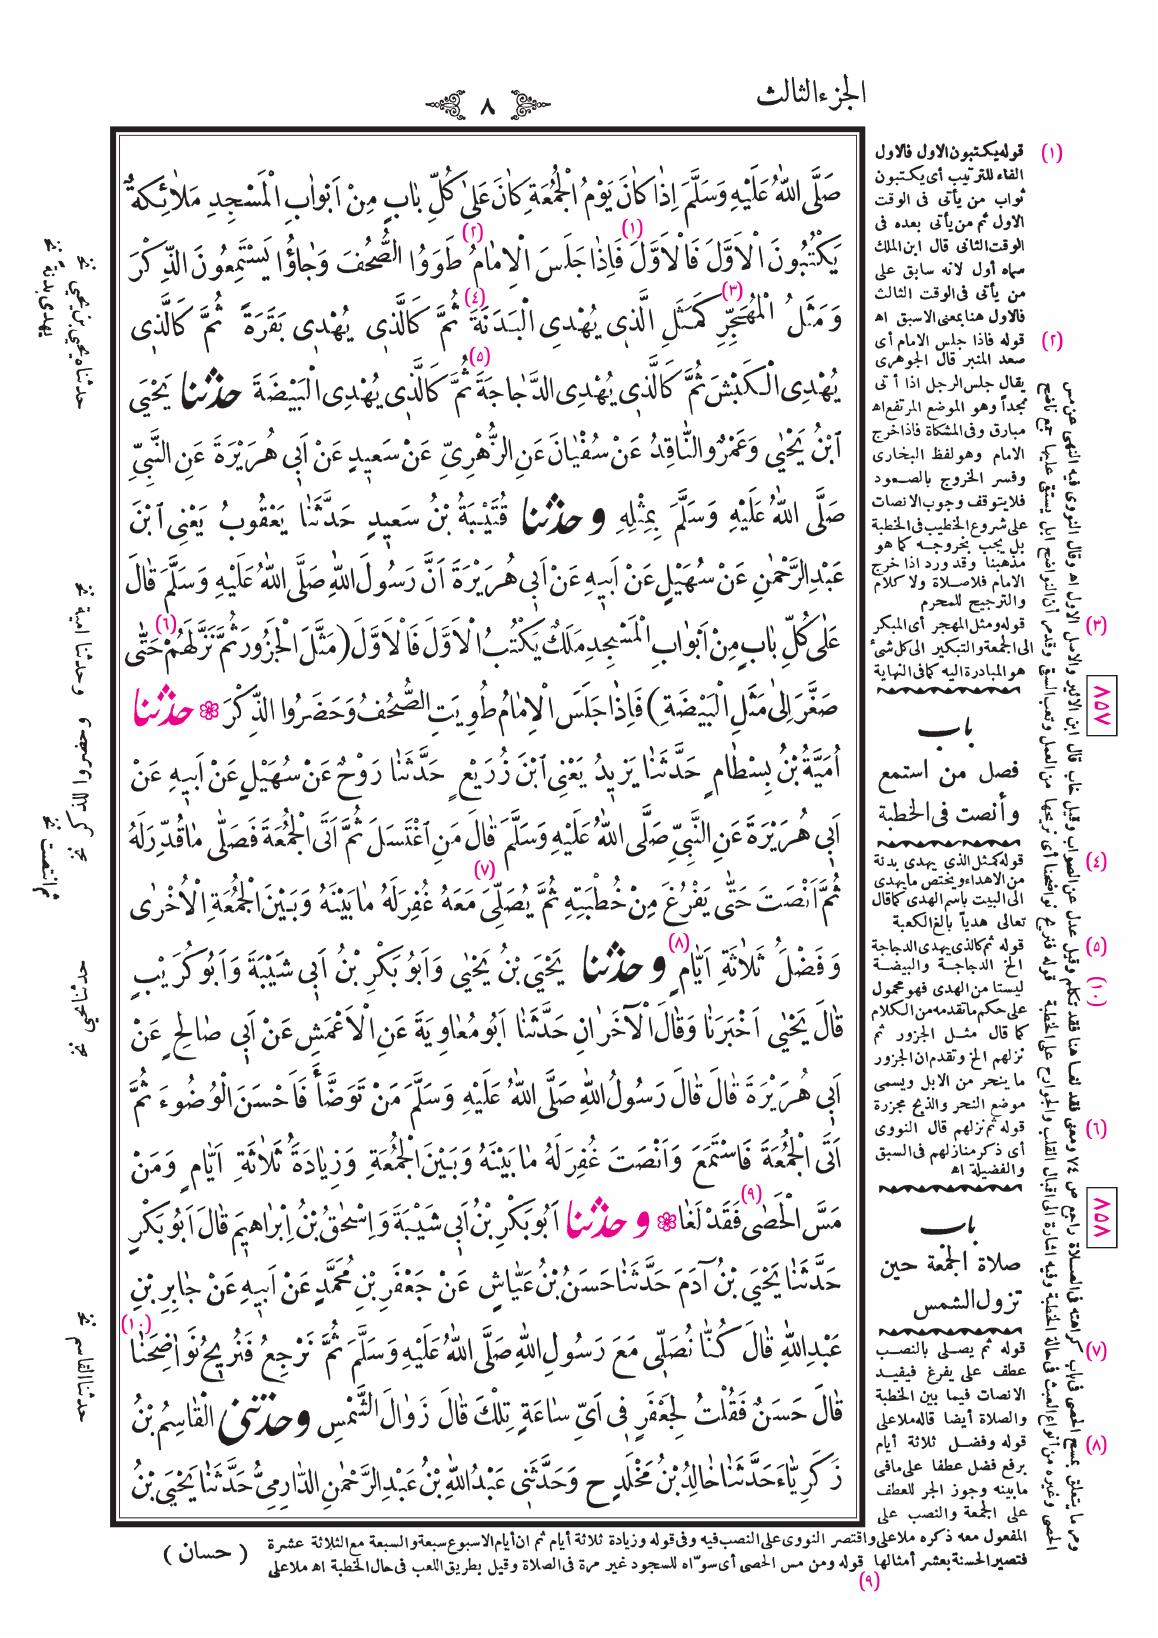 الجزء الثالث
٨
صَلَّى اللّٰهُ عَلَيْهِ وَسَلَّمَ اِذَا كَانَ يَوْمُ الْجُمُعَةِ كَانَ عَلٰى كُلِّ بَابٍ مِنْ اَبْوَابِ الْمَسْجِدِ مَلَائِكَةٌ
يَكْتُبُونَ الْاَوَّلَ فَالْاَوَّلَ (١) فَاِذَا جَلَسَ الْاِمَامُ (٢) طَوَوُا الصُّحُفَ وَجَاؤُا يَسْتَمِعُونَ الذِّكْرَ
وَمَثَلُ الْمُهَجِّرِ (٣) كَمَثَلِ الَّذِي يُهْدِى الْبَدَنَةَ (٤) ثُمَّ كَالَّذِي يُهْدِى بَقَرَةً ثُمَّ كَالَّذِى
يُهْدِى الْكَبْشَ ثُمَّ كَالَّذِي يُهْدِى الدَّجَاجَةَ (٥) ثُمَّ كَالَّذِي يُهْدِى الْبَيْضَةَ حَدَّثَنَا يَحْيَى
ابْنُ يَحْيٰى وَعَمْرٌو النَّاقِدُ عَنْ سُفْيَانَ عَنِ الزُّهْرِىِّ عَنْ سَعِيدٍ عَنْ اَبِى هُرَيْرَةَ عَنِ النَّبِىِّ
صَلَّى اللّٰهُ عَلَيْهِ وَسَلَّمَ بِمِثْلِهِ وحدثنا قُتَيْبَةُ بْنُ سَعِيدٍ حَدَّثَنَا يَعْقُوبُ يَعْنِى ابْنَ
عَبْدِ الرَّحْمٰنِ عَنْ سُهَيْلٍ عَنْ اَبِيهِ عَنْ اَبِى هُرَيْرَةَ اَنَّ رَسُولَ اللّٰهِ صَلَّى اللّٰهُ عَلَيْهِ وَسَلَّمَ قَالَ
عَلٰى كُلِّ بَابٍ مِنْ اَبْوَابِ الْمَسْجِدِ مَلَكٌ يَكْتُبُ الْاَوَّلَ فَالْاَوَّلَ (مَثَّلَ الْجَزُورَ ثُمَّ نَزَّلَهُمْ (٦) حَتّٰى
صَغَّرَ اِلٰى مَثَلِ الْبَيْضَةِ) فَاِذَا جَلَسَ الْاِمَامُ طُوِيَتِ الصُّحُفُ وَحَضَرُوا الذِّكْرَ ❁ حدثنا
اُمَيَّةُ بْنُ بِسْطَامٍ حَدَّثَنَا يَزِيدُ يَعْنِى ابْنَ زُرَيْعٍ حَدَّثَنَا رَوْحٌ عَنْ سُهَيْلٍ عَنْ اَبِيهِ عَنْ
اَبِى هُرَيْرَةَ عَنِ النَّبِىِّ صَلَّى اللّٰهُ عَلَيْهِ وَسَلَّمَ قَالَ مَنِ اغْتَسَلَ ثُمَّ اَتَى الْجُمُعَةَ فَصَلّٰى مَا قُدِّرَ لَهُ
ثُمَّ اَنْصَتَ حَتّٰى يَفْرُغَ مِنْ خُطْبَتِهِ ثُمَّ يُصَلِّىَ (٧) مَعَهُ غُفِرَ لَهُ مَا بَيْنَهُ وَبَيْنَ الْجُمُعَةِ الْاُخْرٰى
وَفَضْلُ ثَلَاثَةِ اَيَّامٍ (٨) وحدثنا يَحْيَى بْنُ يَحْيٰى وَاَبُو بَكْرِ بْنُ اَبِى شَيْبَةَ وَاَبُو كُرَيْبٍ
قَالَ يَحْيٰى اَخْبَرَنَا وَقَالَ الْآخَرَانِ حَدَّثَنَا اَبُو مُعَاوِيَةَ عَنِ الْاَعْمَشِ عَنْ اَبِى صَالِحٍ عَنْ
اَبِى هُرَيْرَةَ قَالَ قَالَ رَسُولُ اللّٰهِ صَلَّى اللّٰهُ عَلَيْهِ وَسَلَّمَ مَنْ تَوَضَّأَ فَاَحْسَنَ الْوُضُوءَ ثُمَّ
اَتَى الْجُمُعَةَ فَاسْتَمَعَ وَاَنْصَتَ غُفِرَ لَهُ مَا بَيْنَهُ وَبَيْنَ الْجُمُعَةِ وَزِيَادَةُ ثَلَاثَةِ اَيَّامٍ وَمَنْ
مَسَّ الْحَصٰى (٩) فَقَدْ لَغَا ❁ وحدثنا اَبُو بَكْرِ بْنُ اَبِى شَيْبَةَ وَاِسْحٰقُ بْنُ اِبْرَاهِيمَ قَالَ اَبُو بَكْرٍ
حَدَّثَنَا يَحْيَى بْنُ آدَمَ حَدَّثَنَا حَسَنُ بْنُ عَيَّاشٍ عَنْ جَعْفَرِ بْنِ مُحَمَّدٍ عَنْ اَبِيهِ عَنْ جَابِرِ بْنِ
عَبْدِ اللّٰهِ قَالَ كُنَّا نُصَلِّى مَعَ رَسُولِ اللّٰهِ صَلَّى اللّٰهُ عَلَيْهِ وَسَلَّمَ ثُمَّ نَرْجِعُ فَنُرِيحُ نَوَاضِحَنَا (١٠)
قَالَ حَسَنٌ فَقُلْتُ لِجَعْفَرٍ فِى اَىِّ سَاعَةٍ تِلْكَ قَالَ زَوَالَ الشَّمْسِ وحدثنى الْقَاسِمُ بْنُ
زَكَرِيَّاءَ حَدَّثَنَا خَالِدُ بْنُ مَخْلَدٍ ح وَحَدَّثَنِى عَبْدُ اللّٰهِ بْنُ عَبْدِ الرَّحْمٰنِ الدَّارِمِىُّ حَدَّثَنَا يَحْيَى بْنُ
(١) قوله يكتبون الاول فالاول
الفاء للترتيب أى يكتبون
ثواب من يأتى فى الوقت
الاول ثم من يأتى بعده فى
الوقت الثانى قال ابن الملك
سماه أول لانه سابق على
من يأتى فى الوقت الثالث
فالاول هنا بمعنى الاسبق اه
(٢) قوله فاذا جلس الامام أى
صعد المنبر قال الجوهرى
يقال جلس الرجل اذا أتى
نجداً وهو الموضع المرتفع اه
مبارق وفى المشكاة فاذا خرج
الامام وهو لفظ البخارى
وفسر الخروج بالصعود
فلا يتوقف وجوب الانصات
على شروع الخطيب فى الخطبة
بل يجب بخروجه كما هو
مذهبنا وقد ورد اذا خرج
الامام فلا صلاة ولا كلام
والترجيح للمحرم
(٣) قوله ومثل المهجر أى المبكر
الى الجمعة والتبكير الى كل شىء
هو المبادرة اليه كما فى النهاية
٨٥٧
باب
فصل من استمع
وأنصت فى الخطبة
(٤) قوله كمثل الذى يهدى بدنة
من الاهداء ويختص ما يهدى
الى البيت باسم الهدى كما قال
تعالى هدياً بالغ الكعبة
(٥) قوله ثم كالذى يهدى الدجاجة
الخ الدجاجة والبيضة
ليستا من الهدى فهو محمول
على حكم ما تقدمه من الكلام
كما قال مثل الجزور ثم
نزلهم الخ وتقدم ان الجزور
ما ينحر من الابل ويسمى
موضع النحر والذبح مجزرة
(٦) قوله ثم نزلهم قال النووى
أى ذكر منازلهم فى السبق
والفضيلة اه
٨٥٨
باب
صلاة الجمعة حين
تزول الشمس
(٧) قوله ثم يصلى بالنصب
عطف على يفرغ فيفيد
الانصات فيما بين الخطبة
والصلاة أيضا قاله ملا على
(٨) قوله وفضل ثلاثة أيام
برفع فضل عطفا على ما فى
ما بينه وجوز الجر للعطف
على الجمعة والنصب على
المفعول معه ذكره ملا على واقتصر النووى على النصب فيه وفى قوله وزيادة ثلاثة أيام ثم ان أيام الاسبوع سبعة والسبعة مع الثلاثة عشرة
فتصير الحسنة بعشر أمثالها قوله ومن مس الحصى أى سوّاه للسجود غير مرة فى الصلاة وقيل بطريق اللعب فى حال الخطبة اه ملا على
(٩)
( حسان )
(١٠)
حدثناه يحيى بن يحيى نخ
يهدى بدنة نخ
وحدثنا امية نخ
ثم انتصت نخ
حدثنا القاسم نخ